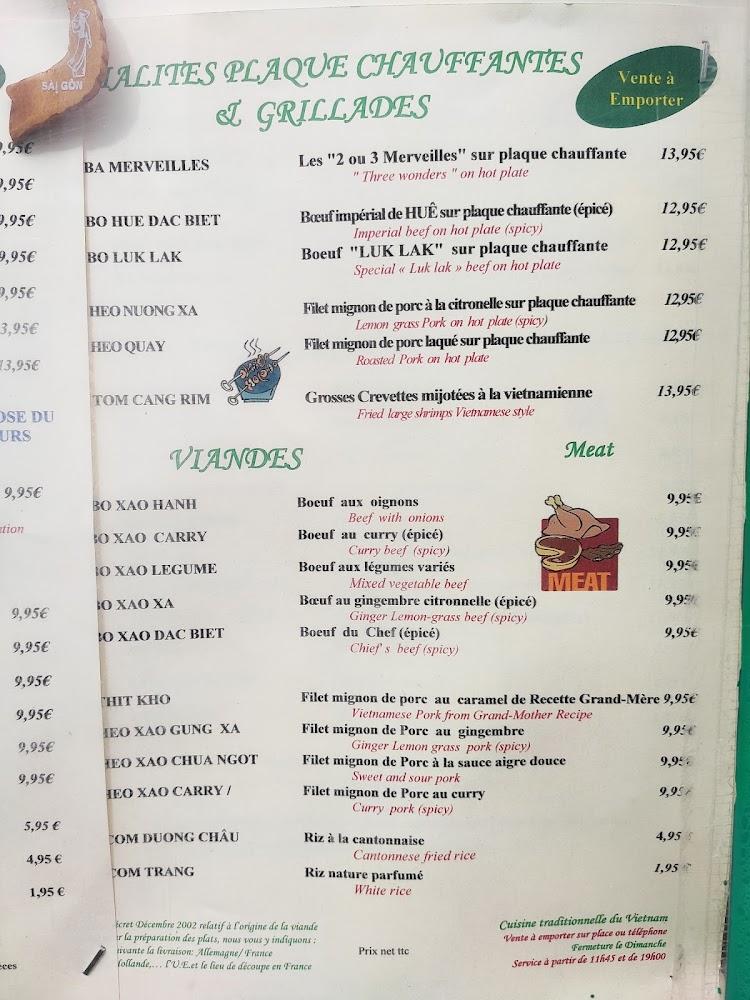 SAI GÒN
IALITES PLAQUE CHAUFFANTES
& GRILLADES
Vente à
Emporter
BA MERVEILLES Les "2 ou 3 Merveilles" sur plaque chauffante 13,95€
" Three wonders " on hot plate
BO HUE DAC BIET Bœuf impérial de HUÊ sur plaque chauffante (épicé) 12,95€
Imperial beef on hot plate (spicy)
BO LUK LAK Boeuf "LUK LAK" sur plaque chauffante 12,95€
Special « Luk lak » beef on hot plate
HEO NUONG XA Filet mignon de porc à la citronelle sur plaque chauffante 12,95€
Lemon grass Pork on hot plate (spicy)
HEO QUAY Filet mignon de porc laqué sur plaque chauffante 12,95€
Roasted Pork on hot plate
TOM CANG RIM Grosses Crevettes mijotées à la vietnamienne 13,95€
Fried large shrimps Vietnamese style
VIANDES Meat
BO XAO HANH Boeuf aux oignons 9,95€
Beef with onions
BO XAO CARRY Boeuf au curry (épicé) 9,95€
Curry beef (spicy)
BO XAO LEGUME Boeuf aux légumes variés 9,95€
Mixed vegetable beef
BO XAO XA Bœuf au gingembre citronnelle (épicé) 9,95€
Ginger Lemon-grass beef (spicy)
BO XAO DAC BIET Boeuf du Chef (épicé) 9,95€
Chief's beef (spicy)
MEAT
THIT KHO Filet mignon de porc au caramel de Recette Grand-Mère 9,95€
Vietnamese Pork from Grand-Mother Recipe
HEO XAO GUNG XA Filet mignon de Porc au gingembre 9,95€
Ginger Lemon grass pork (spicy)
HEO XAO CHUA NGOT Filet mignon de Porc à la sauce aigre douce 9,95€
Sweet and sour pork
HEO XAO CARRY / Filet mignon de Porc au curry 9,95
Curry pork (spicy)
COM DUONG CHÂU Riz à la cantonnaise 4,95
Cantonnese fried rice
COM TRANG Riz nature parfumé 1,95
White rice
écret Décembre 2002 relatif à l'origine de la viande
ur la préparation des plats, nous vous y indiquons :
uivante la livraison: Allemagne/ France
Hollande,... l'U.E.et le lieu de découpe en France
Prix net ttc
Cuisine traditionnelle du Vietnam
Vente à emporter sur place ou téléphone
Fermeture le Dimanche
Service à partir de 11h45 et de 19h00
9,95€
9,95€
9,95€
9,95€
9,95€
3,95€
13,95€
OSE DU
URS
9,95€
ation
9,95€
9,95€
9,95€
9,95€
9,95€
9,95€
5,95 €
4,95 €
1,95 €
èces